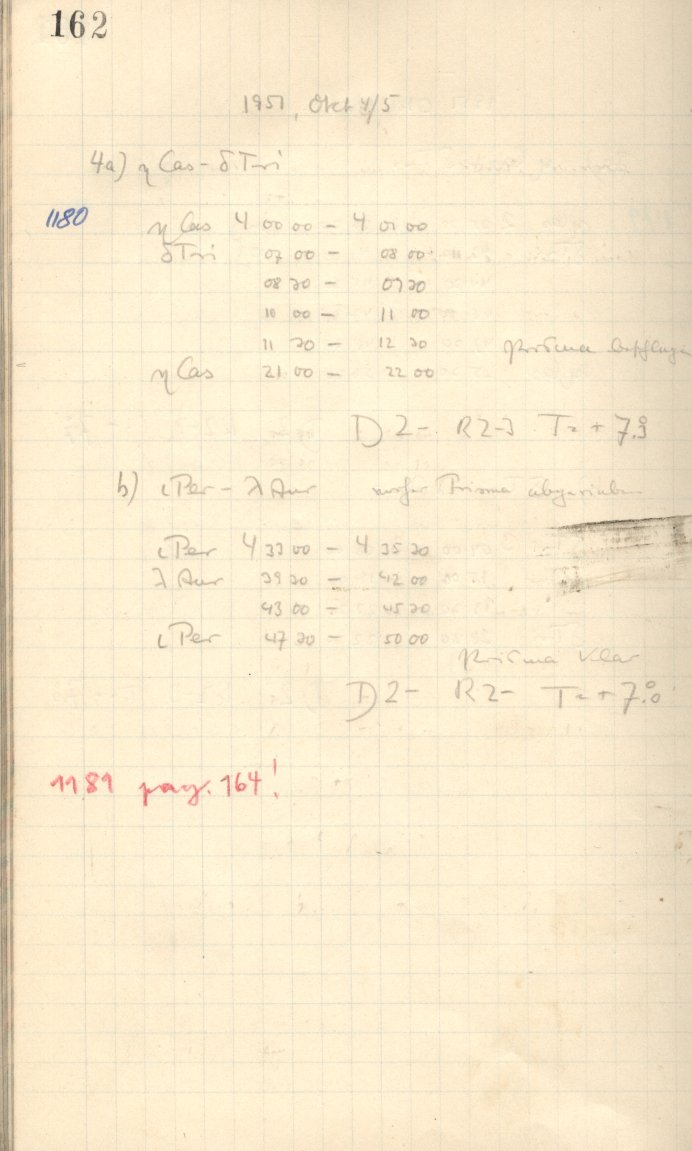 162
1951, Okt 4/5
4a) η Cas - δ Tri
1180
η Cas 4 00 00 - 4 01 00
δ Tri 07 00 - 08 00
08 30 - 09 30
10 00 - 11 00
11 30 - 12 30 Prisma beschlagen
η Cas 21 00 - 22 00
D 2- R 2-3 T = + 7.°3
b) ι Per - λ Aur vorher Prisma abgerieben
ι Per 4 33 00 - 4 35 30
λ Aur 39 30 - 42 00
43 00 - 45 30
ι Per 47 30 - 50 00
Prisma klar
D 2- R 2- T = + 7.°0
1181 pag. 164!